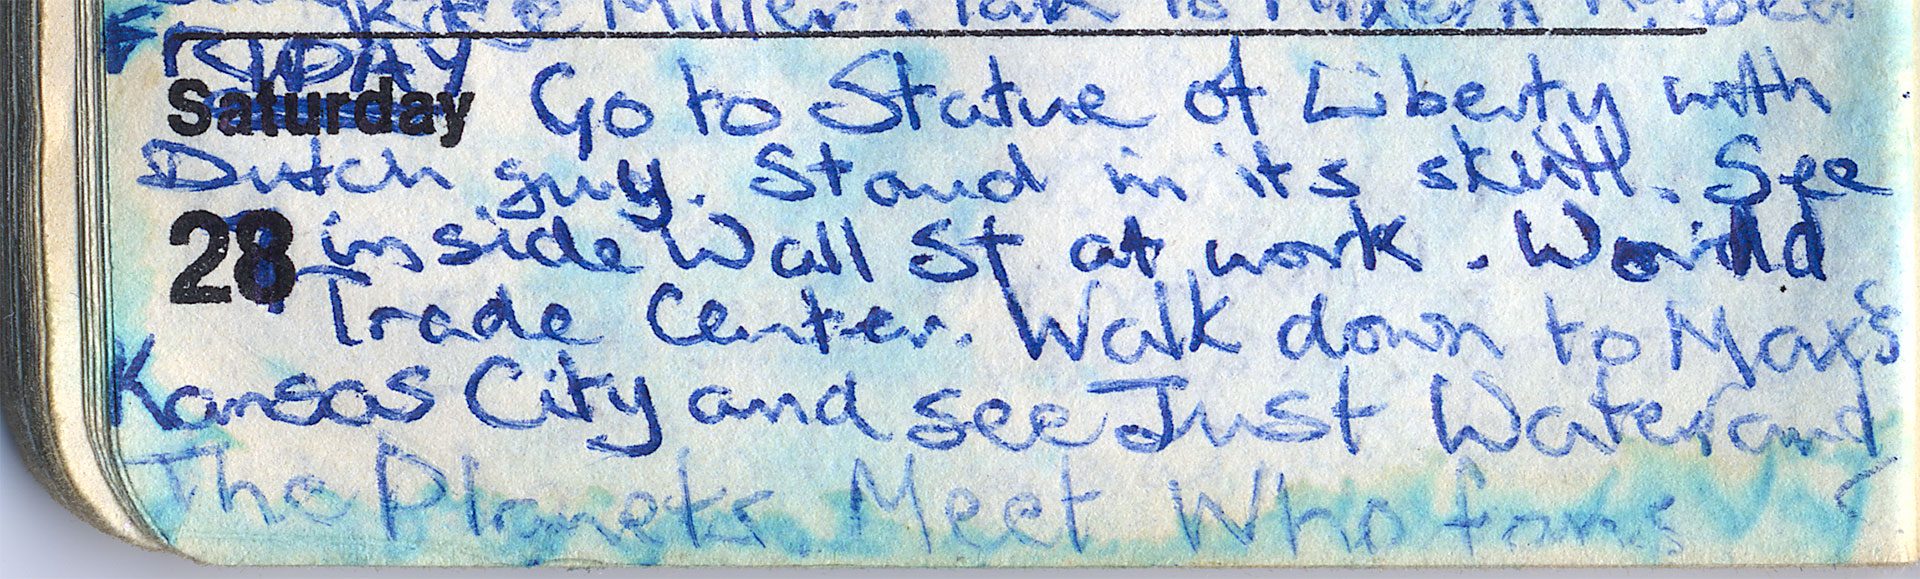 Kate Miller. Talk is
FRIDAY
Saturday Go to Statue of Liberty with
Dutch guy. Stand in its skull. See
28 inside Wall St at work. World
Trade Center. Walk down to Max's
Kansas City and see Just Water and
The Planets. Meet Who fans